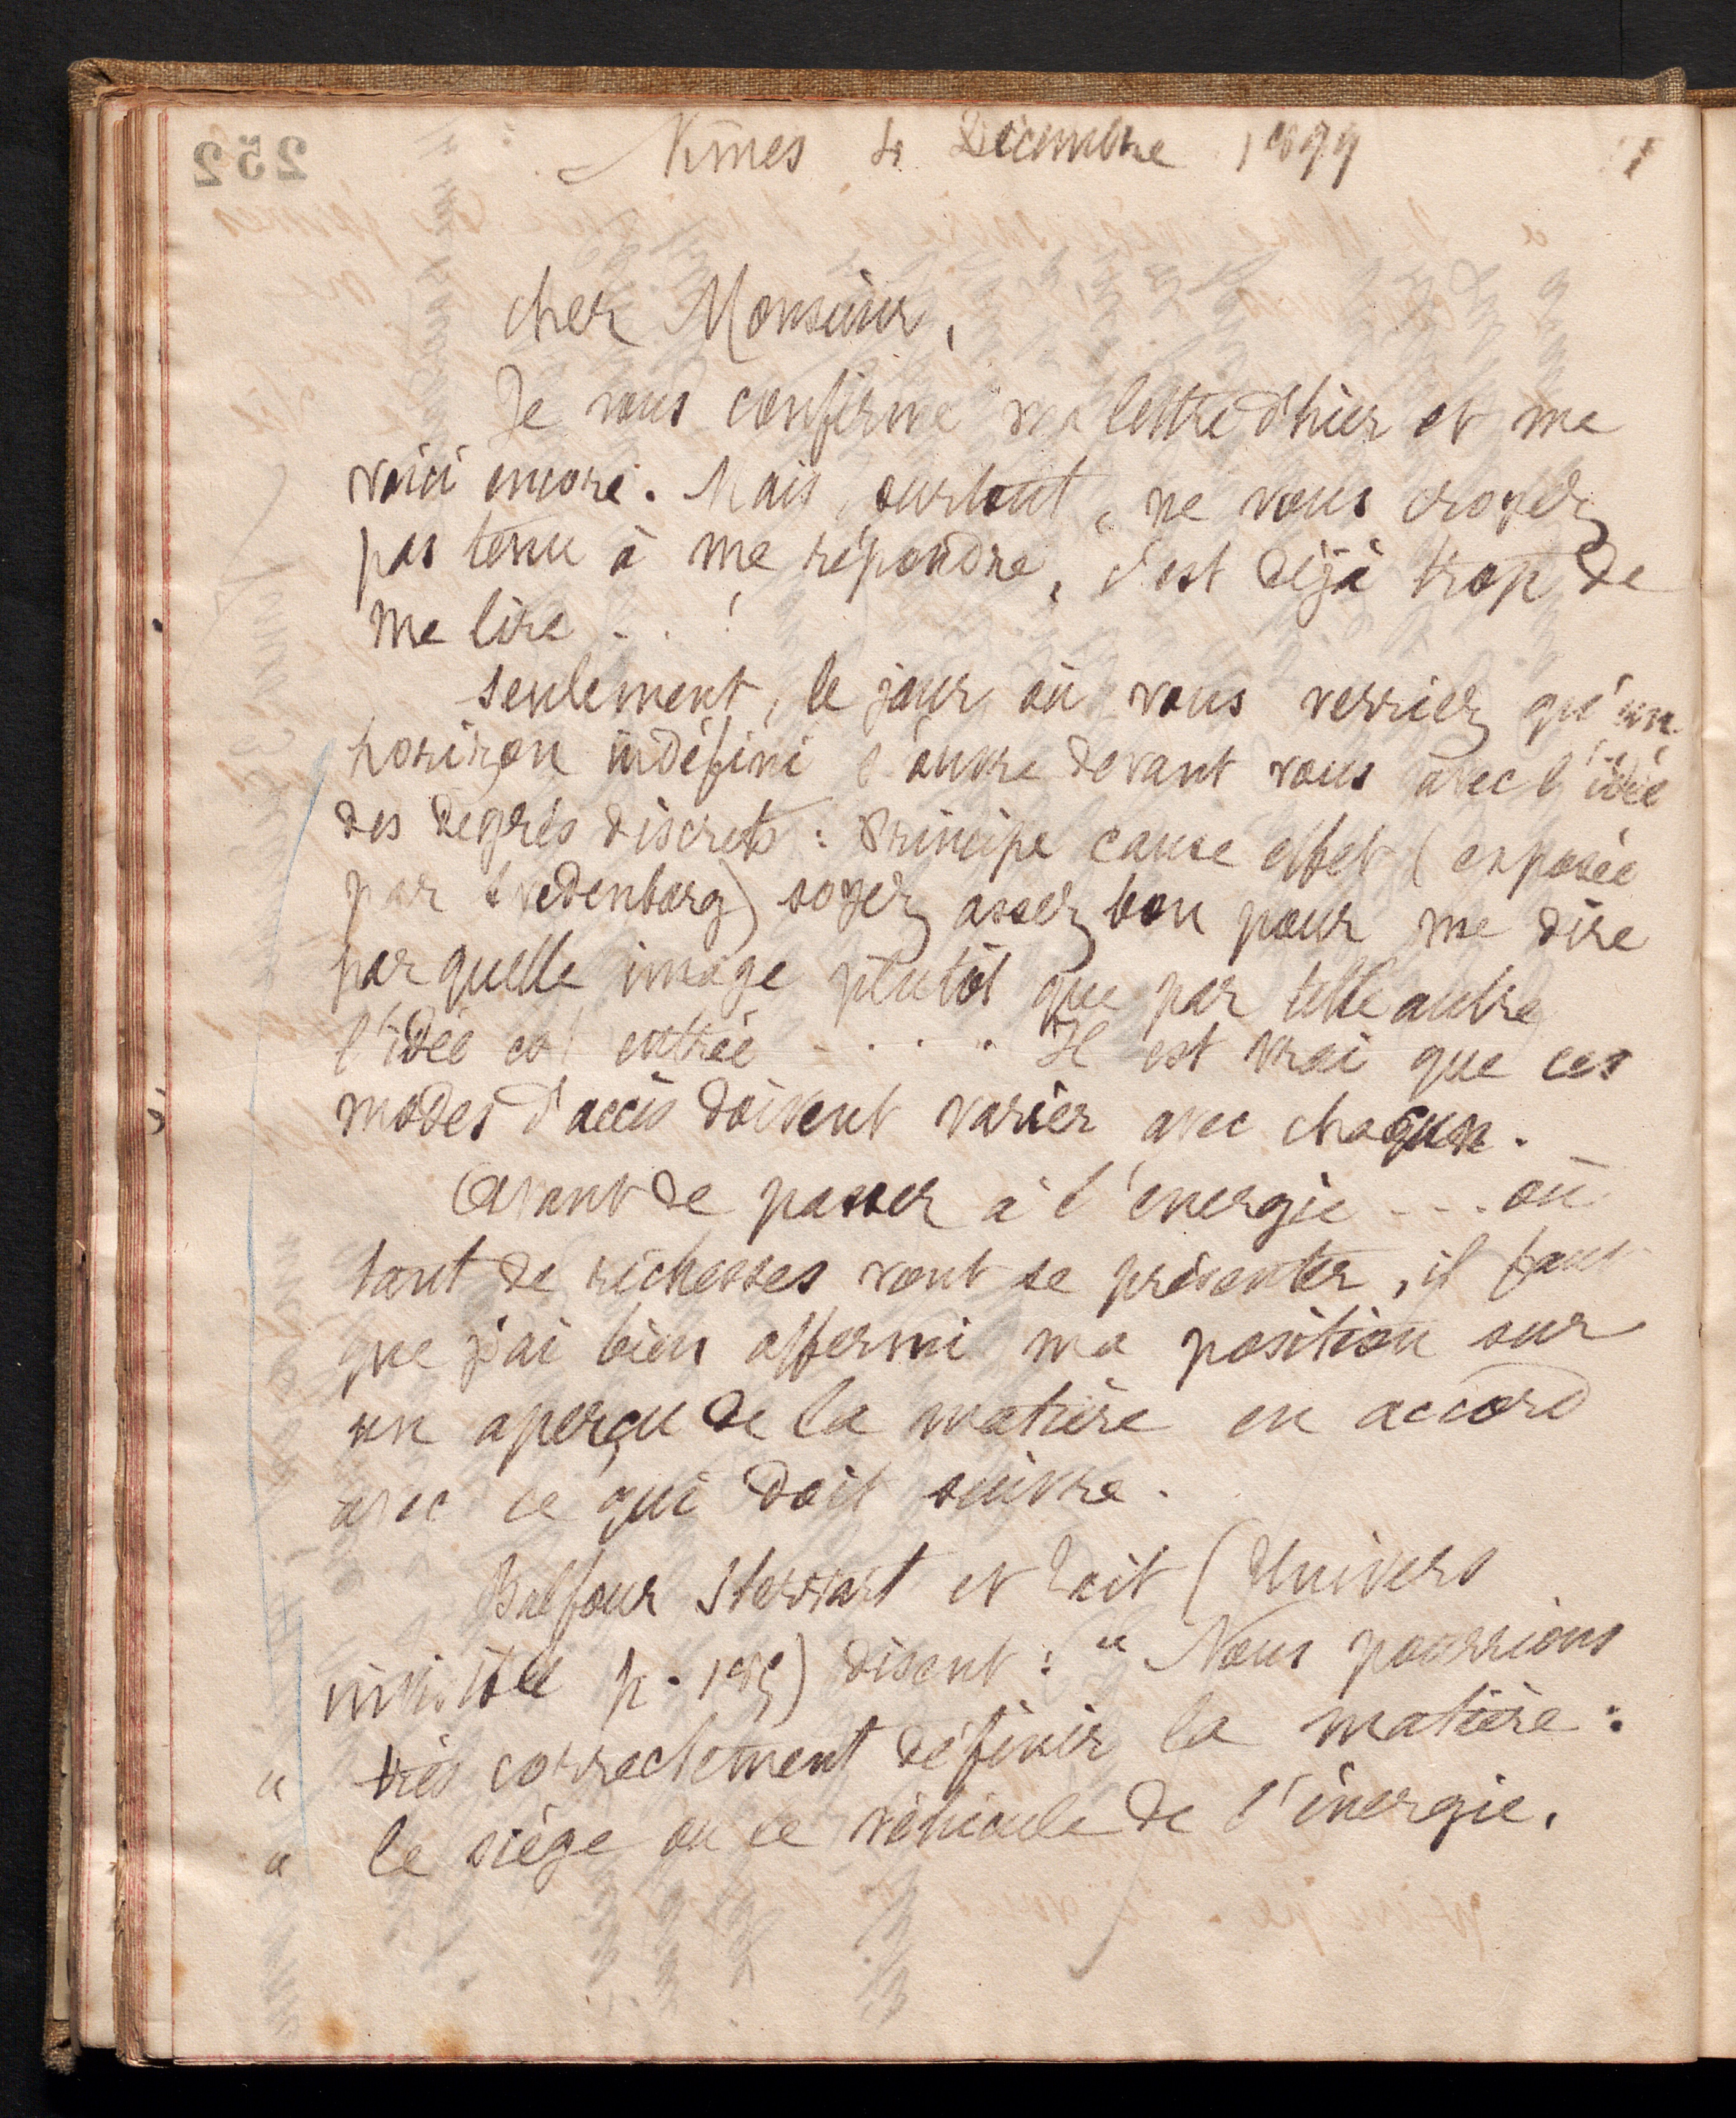 252
Nîmes 4 Décembre 1899
1
Cher Monsieur,
Je vous confirme ma lettre d'hier et me
voici encore. Mais, surtout, ne vous croyez
pas tenu à me répondre, c'est déjà trop de
me lire . . !
Seulement, le jour où vous verriez qu'un
horizon indéfini s'ouvre devant vous avec l'idée
des degrés discrets : Principe cause effet (exposée
par Swedenborg) soyez assez bon pour me dire
par quelle image plutôt que par telle autre
l'idée est entrée - . . . Il est vrai que ces
modes d'accès doivent varier avec chaqun.
Avant de passer à l'énergie - - . où
tant de richesses vont se présenter, il faut
que j'ai bien affermi ma position sur
un aperçu de la matière en accord
avec ce qui doit suivre.
Balfour Stewart et Tait (Univers
invisible p. ) disent : " Nous pourrions
" très correctement définir la matière :
" le siège ou le véhicule de l'énergie.